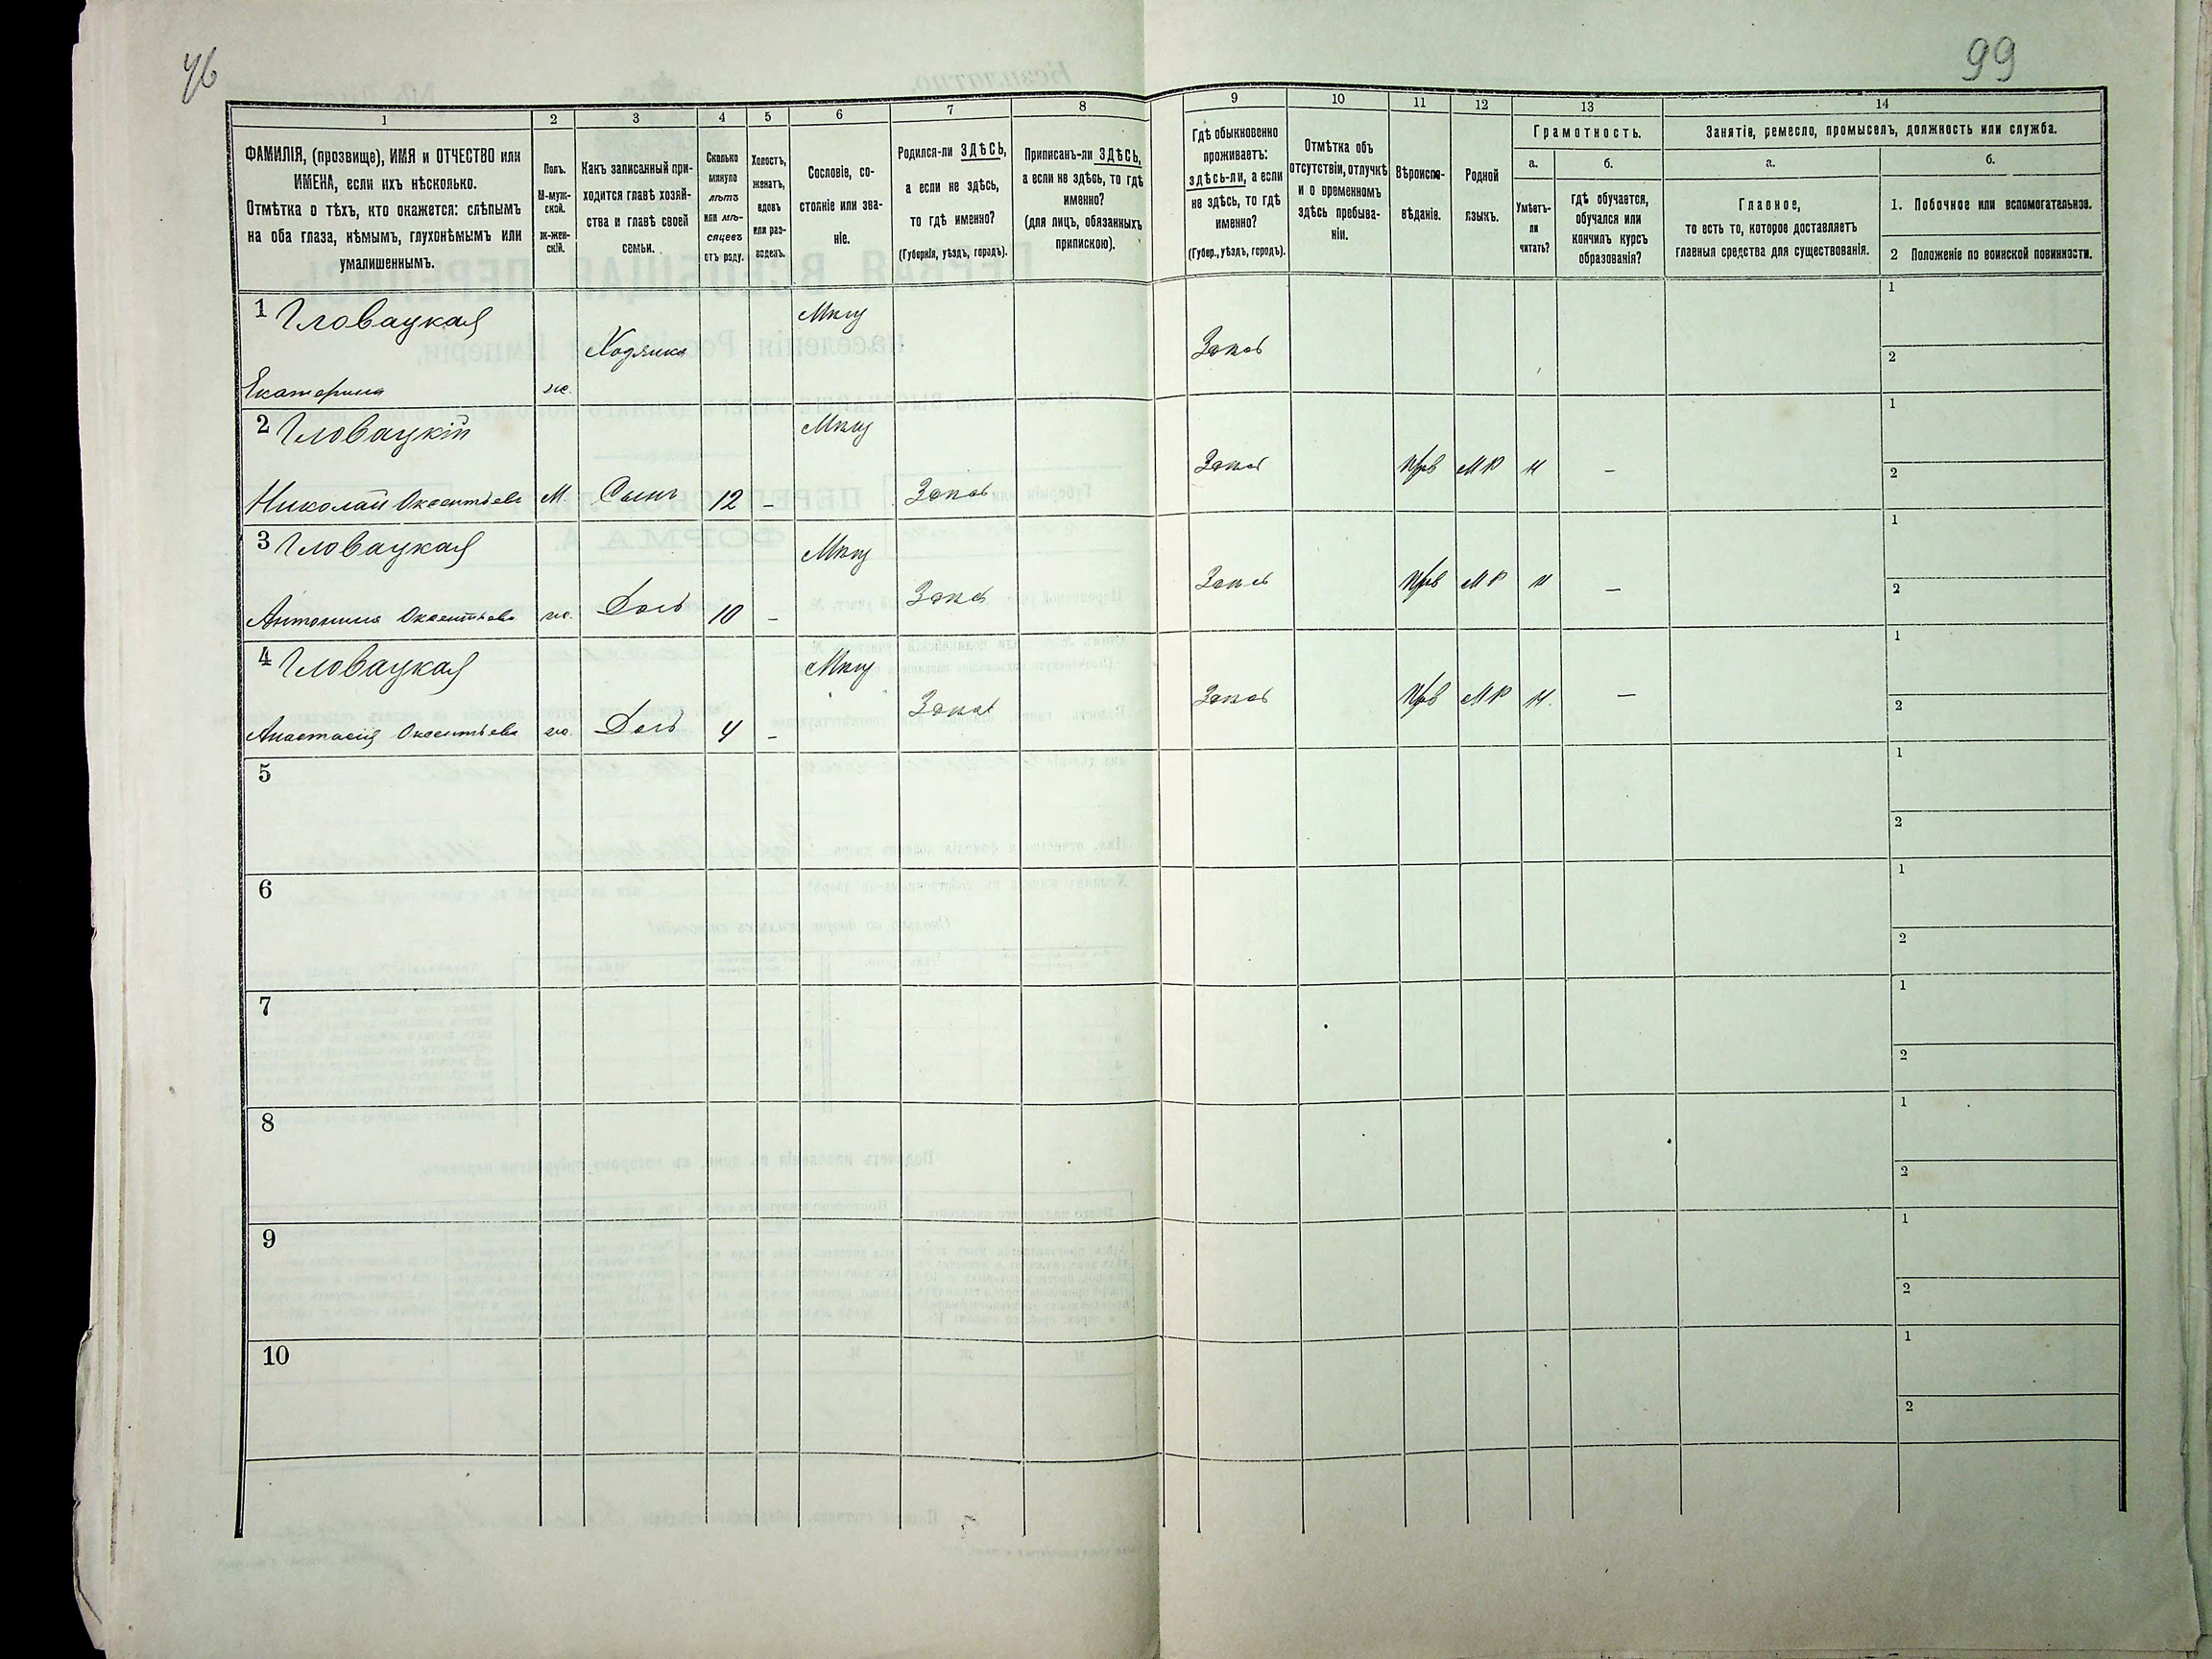 99
1 2 3 4 5 6 7 8 9 10 11 12 13 14
ФАМИЛІЯ, (прозвище), ИМЯ и ОТЧЕСТВО или
ИМЕНА, если ихъ нѣсколько.
Отмѣтка о тѣхъ, кто окажется: слѣпымъ
на оба глаза, нѣмымъ, глухонѣмымъ или
умалишеннымъ.
Полъ.
М-муж-
ской.
ж-жен-
скій.
Какъ записанный при-
ходится главѣ хозяй-
ства и главѣ своей
семьи.
Сколько
минуло
лѣтъ
или мѣ-
сяцевъ
отъ роду.
Холостъ,
женатъ,
вдовъ
или раз-
веденъ.
Сословіе, со-
стояніе или зва-
ніе.
Родился-ли ЗДѢСЬ,
а если не здѣсь,
то гдѣ именно?
(Губернія, уѣздъ, городъ).
Приписанъ-ли ЗДѢСЬ,
а если не здѣсь, то гдѣ
именно?
(для лицъ, обязанныхъ
припискою).
Гдѣ обыкновенно
проживаетъ:
здѣсь-ли, а если
не здѣсь, то гдѣ
именно?
(Губер., уѣздъ, городъ).
Отмѣтка объ
отсутствіи, отлучкѣ
и о временномъ
здѣсь пребыва-
ніи.
Вѣроиспо-
вѣданіе.
Родной
языкъ.
Грамотность.
а.
Умѣетъ-
ли
читать?
б.
гдѣ обучается,
обучался или
кончилъ курсъ
образованія?
Занятіе, ремесло, промыселъ, должность или служба.
а.
Главное,
то есть то, которое доставляетъ
главныя средства для существованія.
б.
1. Побочное или вспомогательное.
2 Положеніе по воинской повинности.
1 Гловацкая
Екатерина
ж.
Мпщ
1
2
2 Гловацкій
Николай
М. Сынъ 12 -
Мпщ
МР Н —
1
2
3 Гловацкая
Антонина
ж. Дочь 10 -
Мпщ
МР Н —
1
2
4 Гловацкая
Анастасія
ж. Дочь 4 -
Мпщ
МР Н. —
1
2
5
1
2
6
1
2
7
1
2
8
1
2
9
1
2
10
1
2